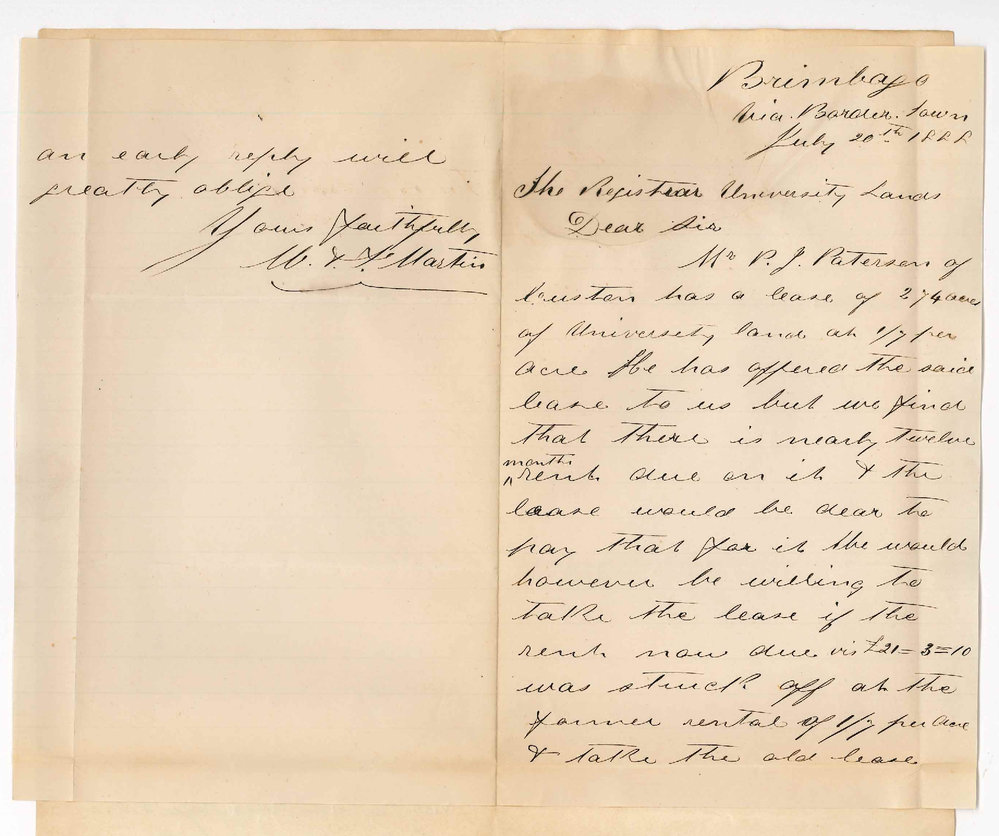 Brimbago
Via. Border. Town
July 20th 1888
The Registrar University Lands
Dear Sir
Mr P. J. Paterson of
has a lease of 274 acres
of University land at 1/7 per
acre He has offered the said
lease to us but we find
that there is nearly twelve
months
rent due on it & the
lease would be dear to
pay that for it We would
however be willing to
take the lease if the
rent now due vis £21=3=10
was struck off at the
former rental of 1/7 per acre
& take the old lease
an early reply will
greatly oblige
Yours faithfully
W. & F. Martin